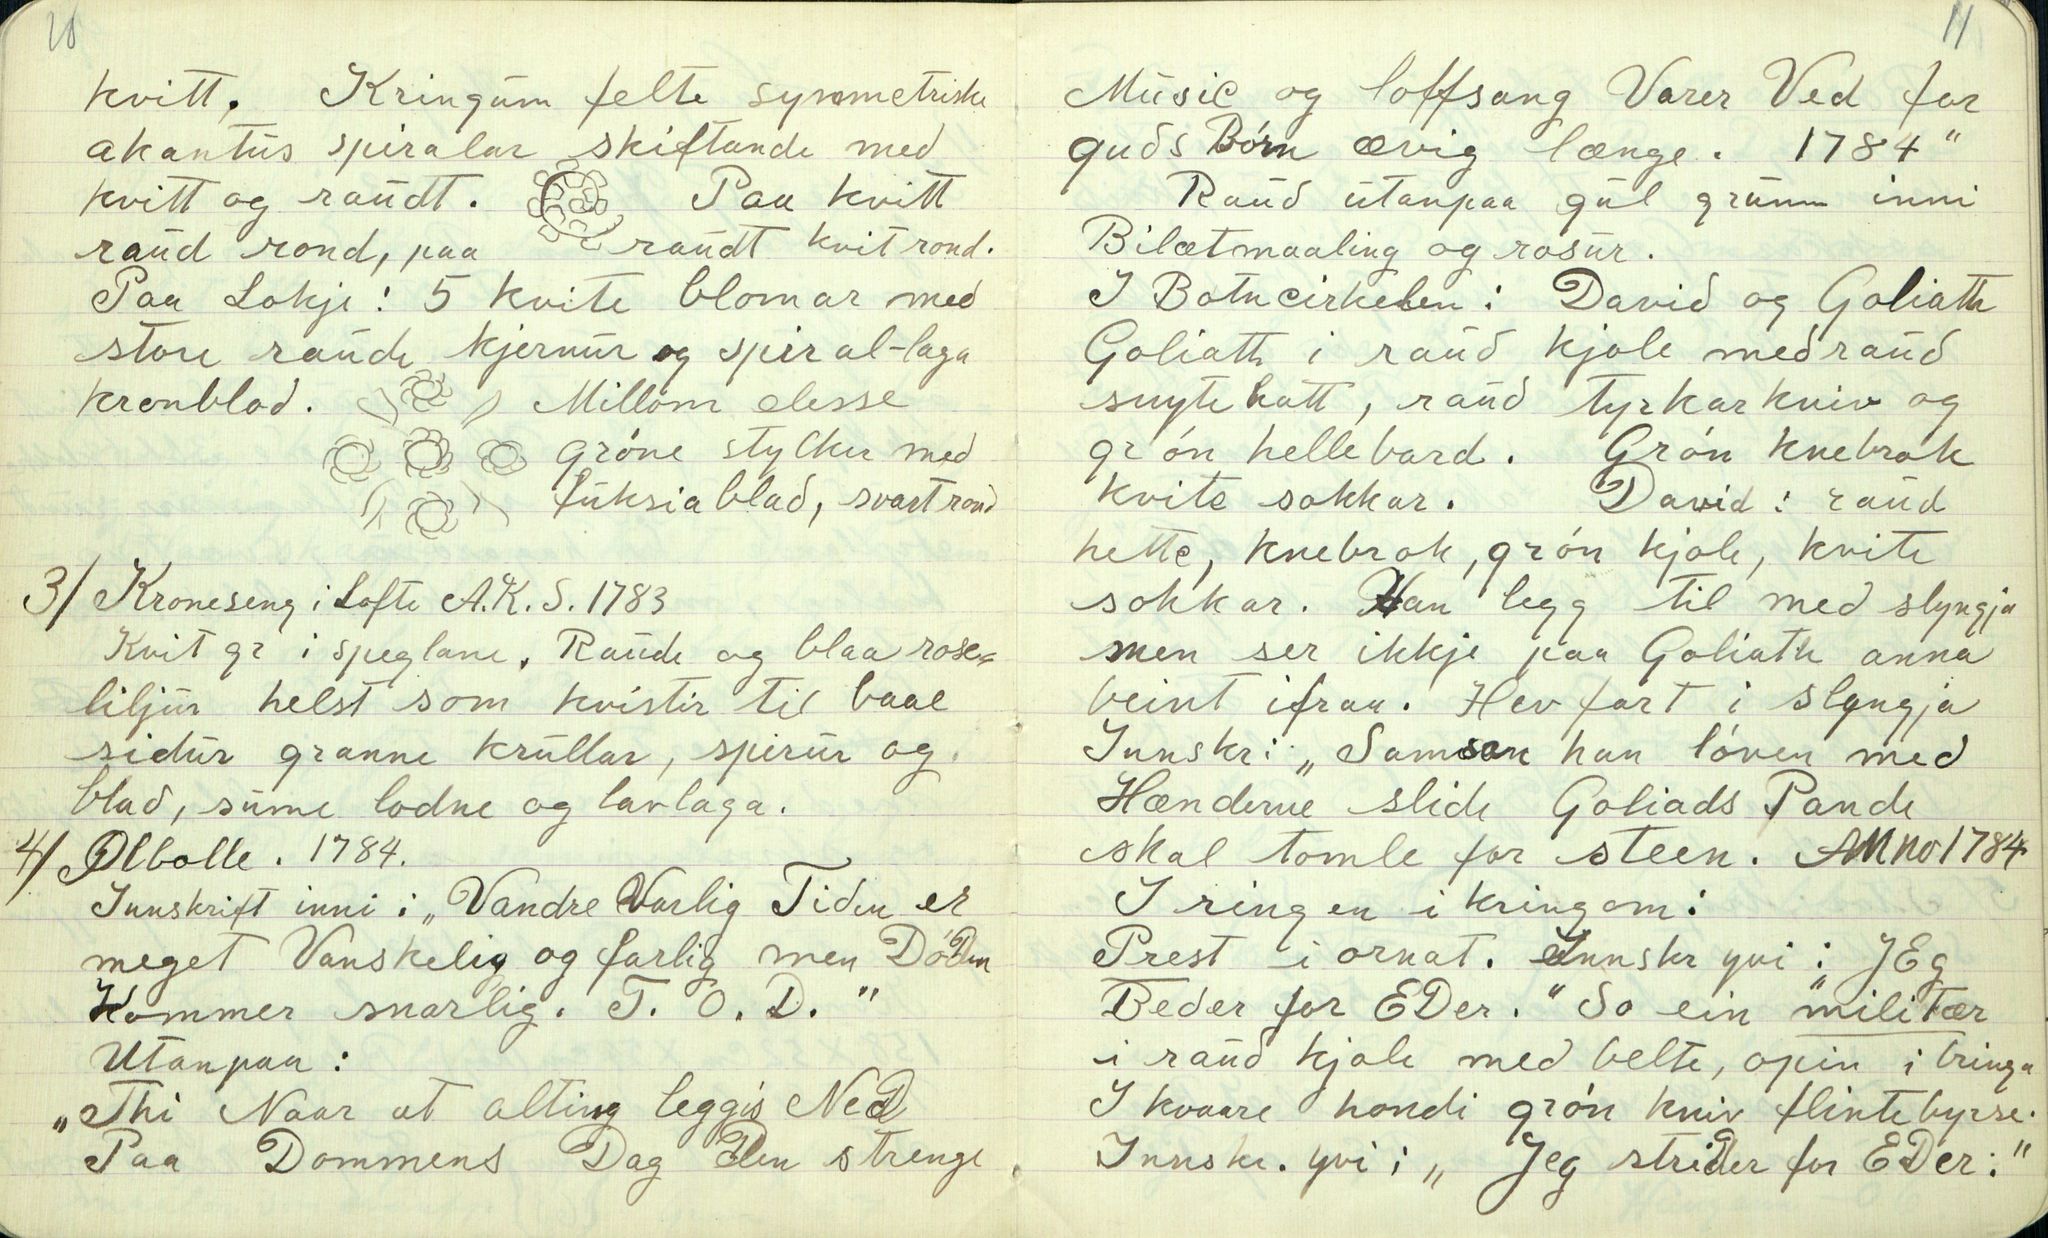 10
kvitt. Kringum felte symmetriske
akantus spiralar skiftande med
kvitt og raudt. Paa kvitt
raud rond, paa raudt kvit rond.
Paa Lokje: 5 kvite blomar med
store raude kjernur og spiral-laga
kronblod. Millom desse
gróne stylkur med
fuksia blad, svart rond
3/ Kroneseng i Lofte A.K.S. 1783
Kvit gr i speglane. Raude og blaa rose=
liljur helst som kvistir til baae
sidur granne krullar, spirur og
blad, sume lodne og lavlaga.
4/ Ølbolle. 1784.
Innskrift inni: „Vandre Varlig Tiden er
meget Vanskelig og farlig men DóDen
Kommer snarlig. T. O. D."
Utanpaa:
„Thi Naar at alting leggis NeD
Paa Dommens Dag Den strenge
11
Music og loffsang Varer Ved for
guds Bórn ævig længe. 1784"
Raud utanpaa gul grunn inni
Bilætmaaling og rosur.
I Botncirkelen: David og Goliath
Goliath i raud kjole med raud
snyte hatt, raud tyrkarkniv og
grón hellebard. Grón knebrok
kvite sokkar. David: raud
hette, knebrok, grón kjole, kvite
sokkar. Han legg til med slyngja
men ser ikkje paa Goliath anna
beint ifraa. Hev fart i slyngja
Innskr: „Samson han lóven med
Hænderne slide Goliads Pande
skal tomle for steen. ANno 1784
I ringen ikringom:
Prest i ornat. Innskr yvi: „JEg
Beder for EDer." So ein militær
i raud kjole med belte, opin i bringa
I kvaare hondi grón kniv flintebyrse.
Innskr. yvi: „Jeg striDer for EDer:"